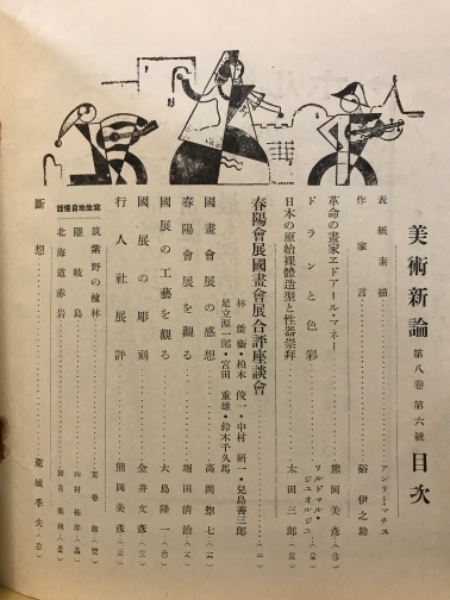 美術新論 第八卷 第六號 目次
表紙素描 アンリー・マチス
作家言 硲伊之助
革命の畫家エドアール・マネー 熊岡美彦
ドランと色彩 ワルドマル・ジュオルジュ
日本の原始裸體造型と性器崇拜 太田三郎
春陽會展國畫會展合評座談會
林倭衞・柏木俊一・中村研一・兒島善三郎
足立源一郎・宮田重雄・鈴木千久馬
國畫會展の感想 高間惣七
春陽會展を觀る 堀田清治
國展の工藝を觀る 大島隆一
國展の彫刻 金井文彦
行人社展評 熊岡美彦
筑紫野の櫨林
隱岐島 山村
北海道赤岩
斷想 荒城季夫